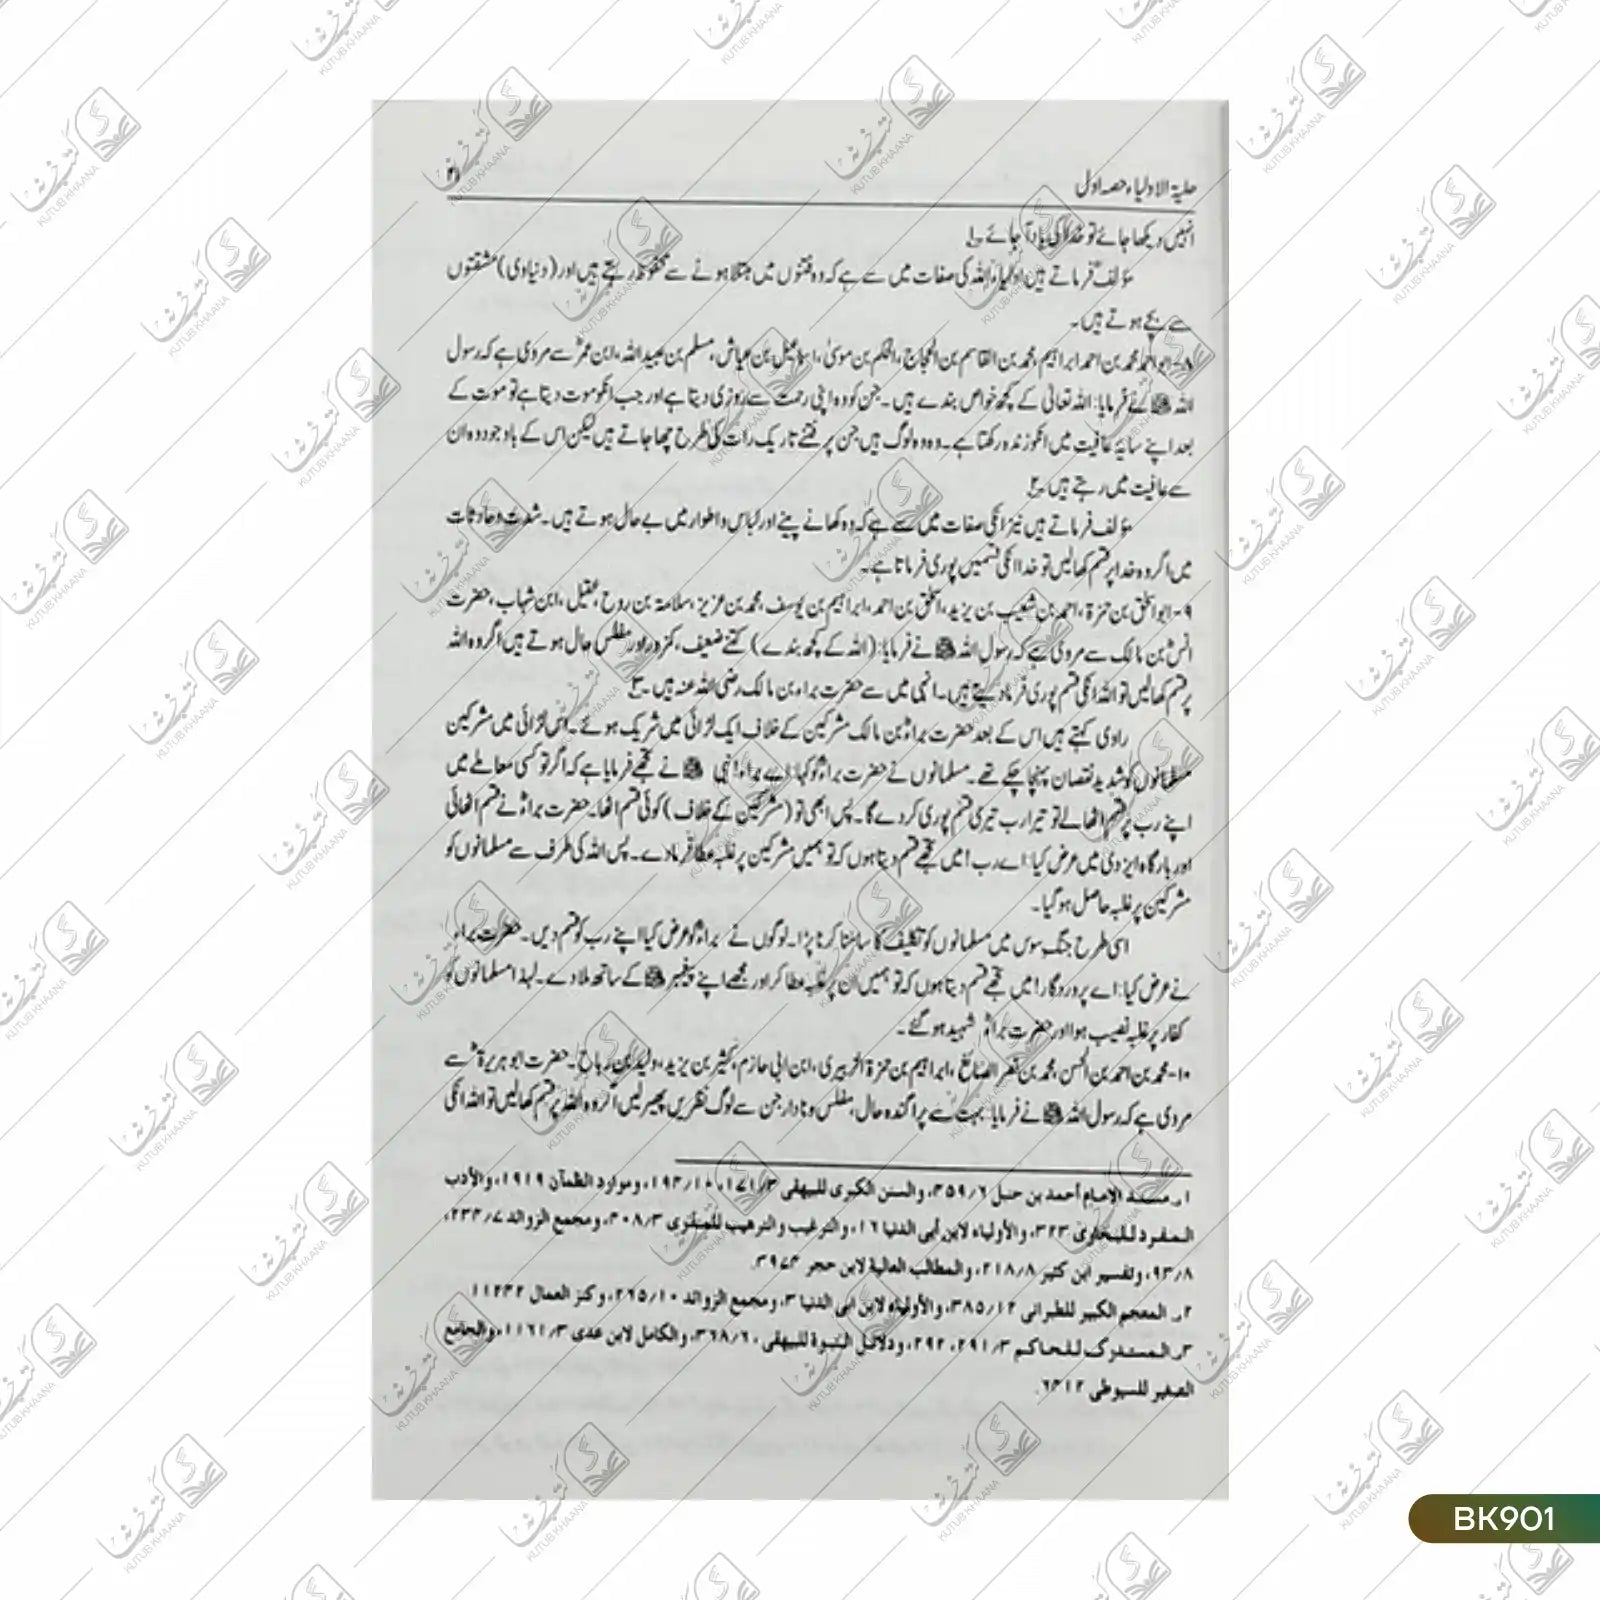 حلیۃ الاولیاء حصہ اول
۳۱
انہیں دیکھا جائے تو خدا کی یاد آ جائے۔۱
مؤلف فرماتے ہیں اولیاء اللہ کی صفات میں سے ہے کہ وہ فتنوں میں مبتلا ہونے سے محفوظ رہتے ہیں اور (دنیاوی) مشقتوں
سے بچے ہوتے ہیں۔
۸- ابو احمد محمد بن احمد ابراہیم، محمد بن القاسم بن الحجاج، الحکم بن موسیٰ، اسماعیل بن عیاش، مسلم بن عبید اللہ، ابن عمرؓ سے مروی ہے کہ رسول
اللہ ﷺ نے فرمایا: اللہ تعالیٰ کے کچھ خواص بندے ہیں۔ جن کو وہ اپنی رحمت سے روزی دیتا ہے اور جب انکو موت دیتا ہے تو موت کے
بعد اپنے سایۂ عافیت میں انکو زندہ رکھتا ہے۔ وہ وہ لوگ ہیں جن پر فتنے تاریک رات کی طرح چھا جاتے ہیں لیکن اس کے باوجود وہ ان
سے عافیت میں رہتے ہیں۔۲
مؤلف فرماتے ہیں نیز انکی صفات میں سے ہے کہ وہ کھانے پینے اور لباس و اطوار میں بے حال ہوتے ہیں۔ شدت و حادثات
میں اگر وہ خدا پر قسم کھالیں تو خدا انکی قسمیں پوری فرماتا ہے۔
۹- ابو اسحٰق بن حمزۃ، احمد بن شعیب بن یزید، اسحٰق بن احمد، ابراہیم بن یوسف، محمد بن عزیز، سلامۃ بن روح، عقیل، ابن شہاب، حضرت
انسؓ بن مالک سے مروی ہے کہ رسول اللہ ﷺ نے فرمایا: (اللہ کے کچھ بندے) کتنے ضعیف، کمزور اور مفلس حال ہوتے ہیں اگر وہ اللہ
پر قسم کھالیں تو اللہ انکی قسم پوری فرما دیتے ہیں۔ انہی میں سے حضرت براء بن مالک رضی اللہ عنہ ہیں۔۳
راوی کہتے ہیں اس کے بعد حضرت براءؓ بن مالک مشرکین کے خلاف ایک لڑائی میں شریک ہوئے۔ اس لڑائی میں مشرکین
مسلمانوں کو شدید نقصان پہنچا چکے تھے۔ مسلمانوں نے حضرت براءؓ کو کہا: اے براء! نبی ﷺ نے تجھے فرمایا ہے کہ اگر تو کسی معاملے میں
اپنے رب پر قسم اٹھالے تو تیرا رب تیری قسم پوری کر دے گا۔ پس ابھی تو (مشرکین کے خلاف) کوئی قسم اٹھا۔ حضرت براءؓ نے قسم اٹھائی
اور بارگاہ ایزدی میں عرض کیا: اے رب! میں تجھے قسم دیتا ہوں کہ تو ہمیں مشرکین پر غلبہ عطا فرما دے۔ پس اللہ کی طرف سے مسلمانوں کو
مشرکین پر غلبہ حاصل ہو گیا۔
اسی طرح جنگ سوس میں مسلمانوں کو تکلیف کا سامنا کرنا پڑا۔ لوگوں نے براءؓ کو عرض کیا اپنے رب کو قسم دیں۔ حضرت براء
نے عرض کیا: اے پروردگار! میں تجھے قسم دیتا ہوں کہ تو ہمیں ان پر غلبہ عطا کر اور مجھے اپنے پیغمبر ﷺ کے ساتھ ملا دے۔ لہذا مسلمانوں کو
کفار پر غلبہ نصیب ہوا اور حضرت براءؓ شہید ہو گئے۔
۱۰- محمد بن احمد بن الحسن، محمد بن نصر الصائغ، ابراہیم بن حمزۃ الزبیری، ابن ابی حازم، کثیر بن یزید، ولید بن رباح۔ حضرت ابو ہریرۃؓ سے
مروی ہے کہ رسول اللہ ﷺ نے فرمایا: بہت سے پراگندہ حال، مفلس و نادار جن سے لوگ نظریں پھیر لیں اگر وہ اللہ پر قسم کھالیں تو اللہ انکی
۱۔ مسند الامام أحمد بن حنبل ۶/۴۵۹، والسنن الکبری للبیھقی ۳/۱۷۱، ۱۰/۱۹۴، وموارد الظمآن ۱۹۱۹، والأدب
المفرد للبخاری ۳۲۳، والأولیاء لابن أبی الدنیا ۱۶، والترغیب والترھیب للمنذری ۳/۴۰۸، ومجمع الزوائد ۷/۲۳۴،
۸/۹۳، وتفسیر ابن کثیر ۸/۲۱۸، والمطالب العالیة لابن حجر ۳۹۷۴.
۲۔ المعجم الکبیر للطبرانی ۱۲/۳۸۵، والأولیاء لابن ابی الدنیا ۳، ومجمع الزوائد ۱۰/۲۶۵، وکنز العمال ۱۱۲۴۲
۳۔ المستدرک للحاکم ۳/۲۹۱، ۲۹۲، ودلائل النبوة للبیھقی ۶/۳۶۸، والکامل لابن عدی ۳/۱۱۶۱، والجامع
الصغیر للسیوطی ۶۴۱۲.
BK901